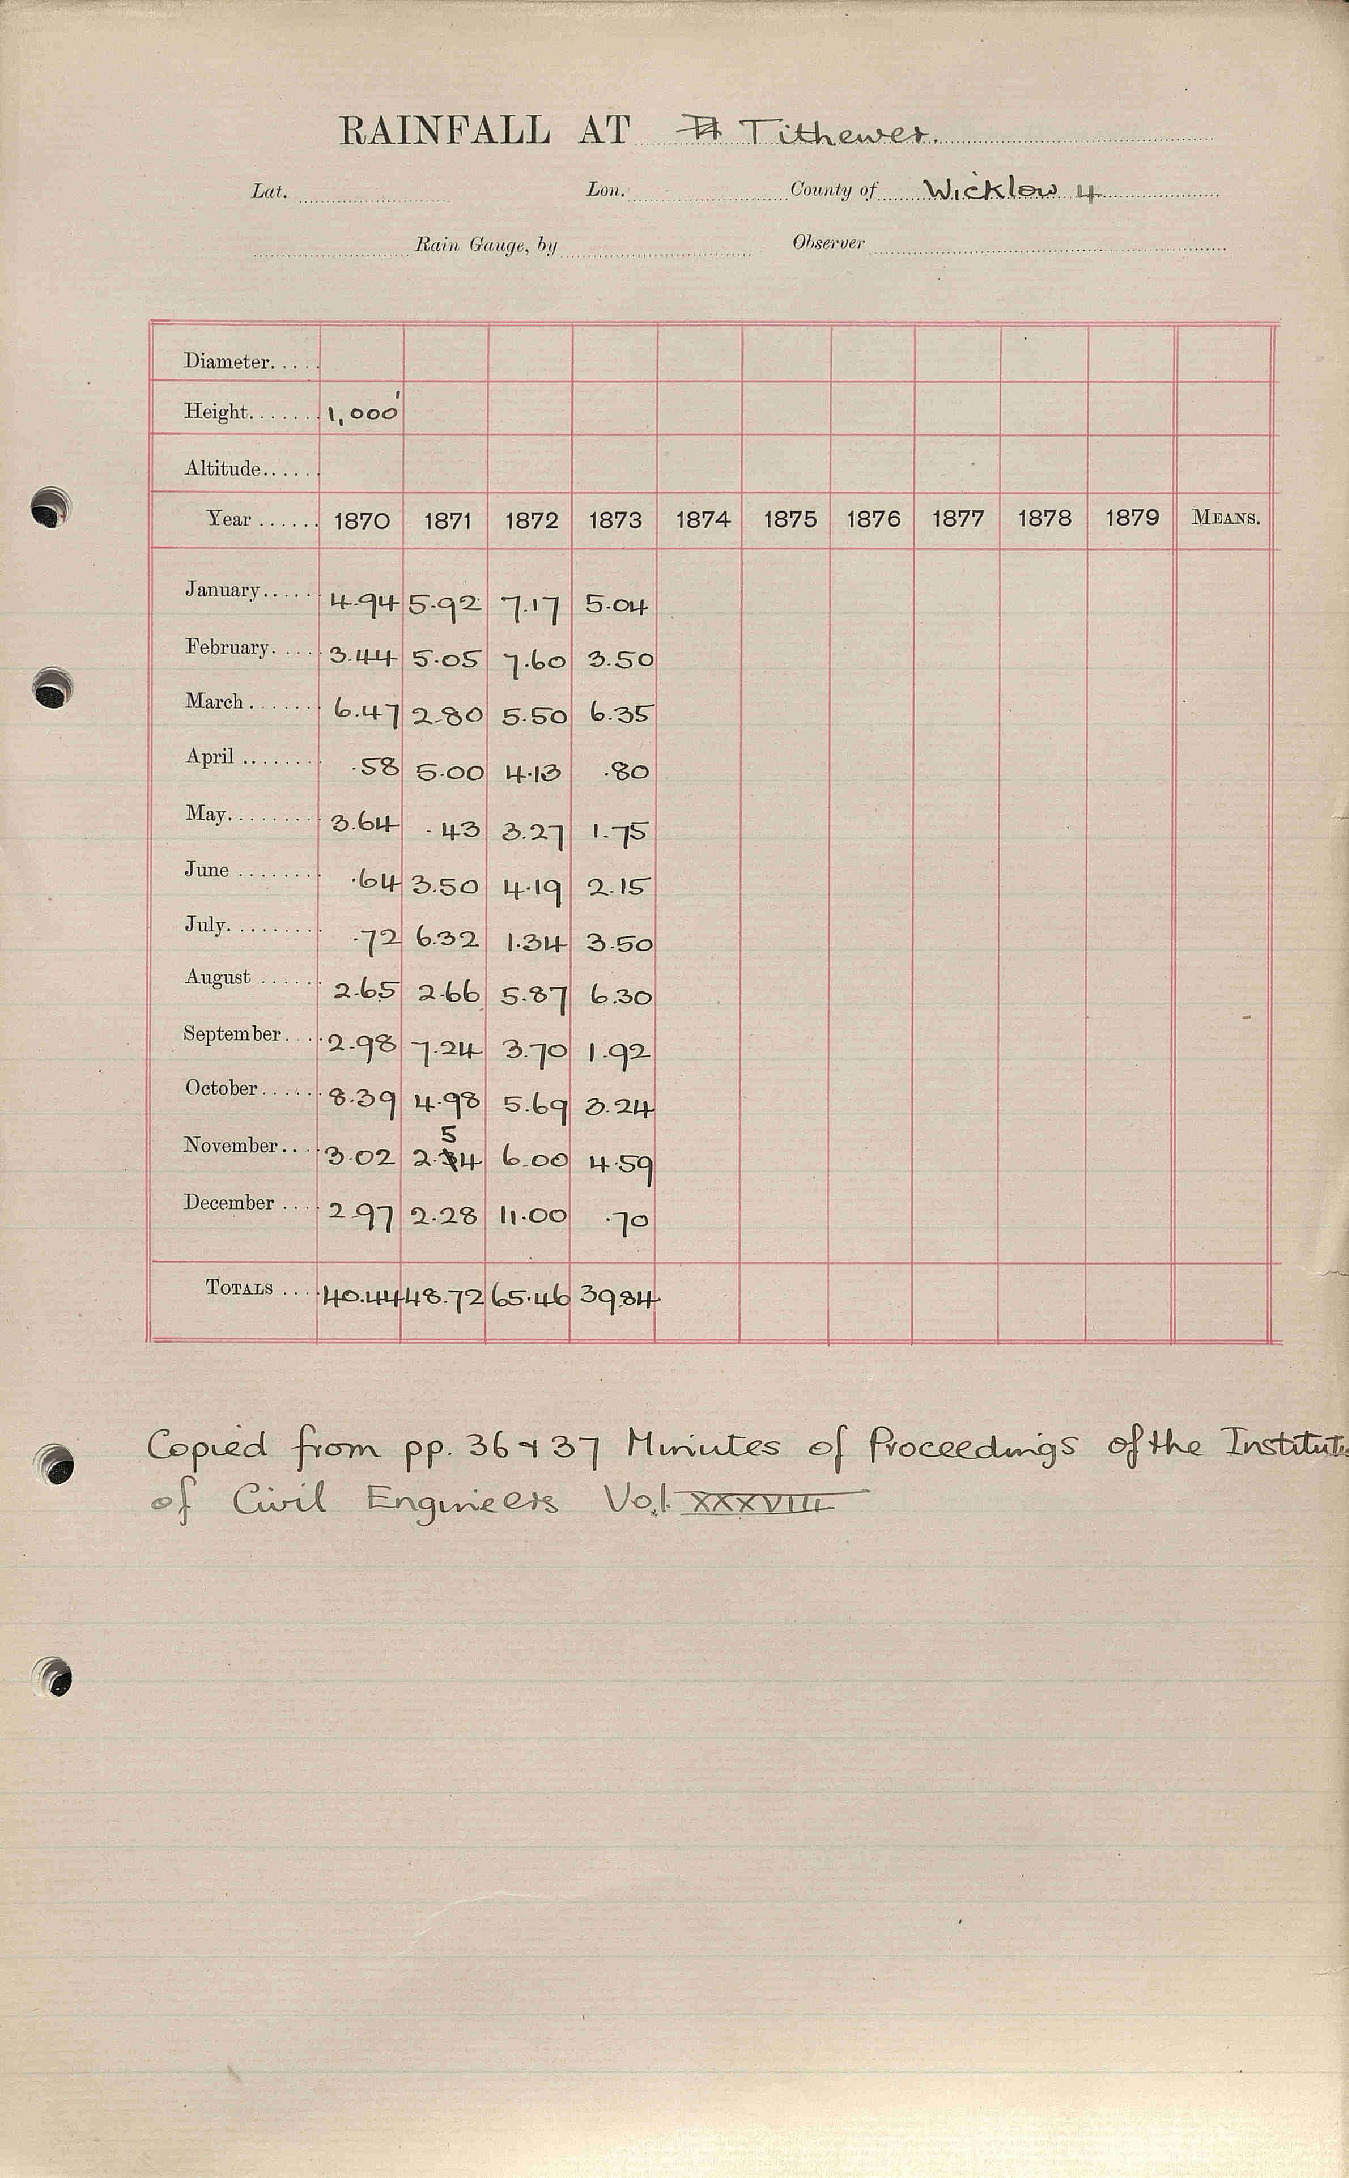 RAINFALL AT Tithewer.
Lat. Lon. County of Wicklow 4
Rain Gauge, by Observer
Diameter.....
Height....... 1,000'
Altitude......
Year ...... 1870 1871 1872 1873 1874 1875 1876 1877 1878 1879 MEANS.
January...... 4.94 5.92 7.17 5.04
February..... 3.44 5.05 7.60 3.50
March ....... 6.47 2.80 5.50 6.35
April ........ .58 5.00 4.13 .80
May......... 3.64 .43 3.27 1.75
June ........ .64 3.50 4.19 2.15
July......... .72 6.32 1.34 3.50
August ...... 2.65 2.66 5.87 6.30
September.... 2.98 7.24 3.70 1.92
October...... 8.39 4.98 5.69 3.24
5
November.... 3.02 2.34 6.00 4.59
December .... 2.97 2.28 11.00 .70
TOTALS .... 40.44 48.72 65.46 39.84
Copied from pp. 36 & 37 Minutes of Proceedings of the Institute
of Civil Engineers Vol. XXXVIII